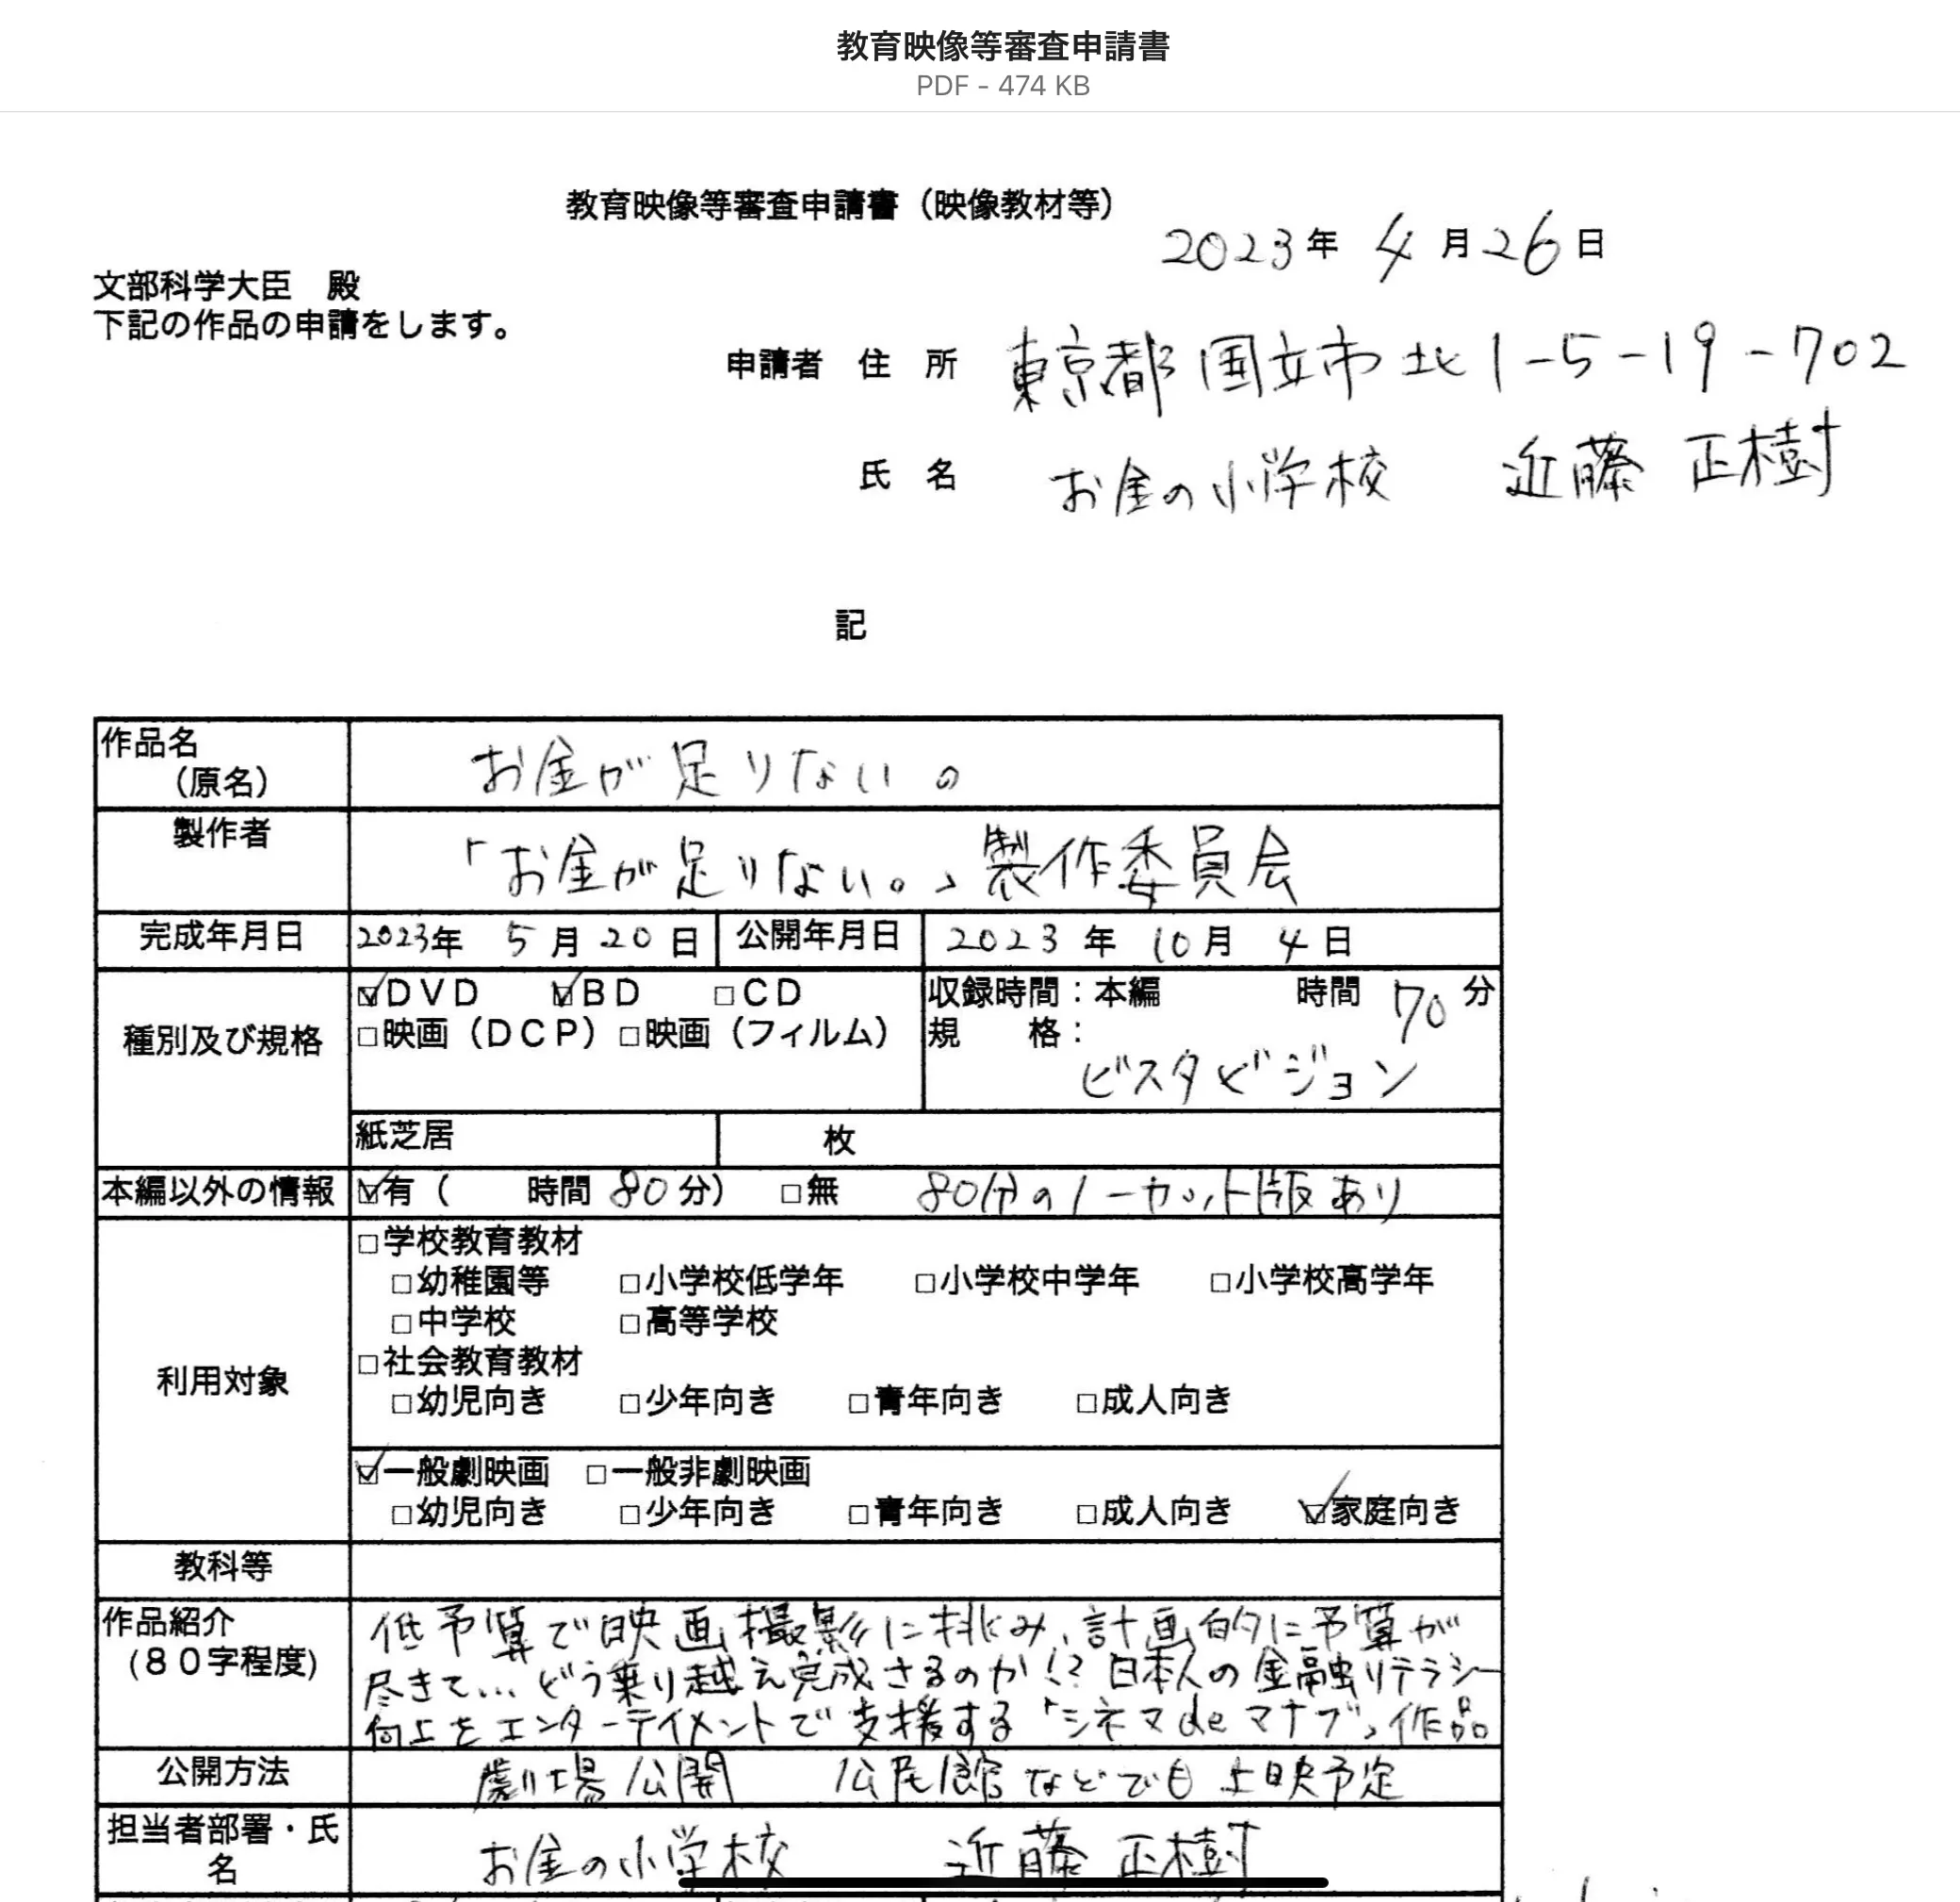 教育映像等審査申請書
PDF - 474 KB
教育映像等審査申請書（映像教材等）
2023年 4月26日
文部科学大臣　殿
下記の作品の申請をします。
申請者　住　所　東京都国立市北1-5-19-702
氏　名　お金の小学校　近藤 正樹
記
作品名　お金が足りない。
（原名）
製作者　「お金が足りない。」製作委員会
完成年月日　2023年 5月20日　公開年月日　2023年 10月 4日
種別及び規格　☑DVD　☑BD　□CD　収録時間：本編　時間 70分
□映画（DCP）□映画（フィルム）　規　格：
ビスタビジョン
紙芝居　枚
本編以外の情報　☑有（　時間 80分）　□無　80分のノーカット版あり
利用対象
□学校教育教材
□幼稚園等　□小学校低学年　□小学校中学年　□小学校高学年
□中学校　□高等学校
□社会教育教材
□幼児向き　□少年向き　□青年向き　□成人向き
☑一般劇映画　□一般非劇映画
□幼児向き　□少年向き　□青年向き　□成人向き　☑家庭向き
教科等
作品紹介　低予算で映画撮影に挑み、計画的に予算が
（80字程度）　尽きて…どう乗り越え完成さるのか!?日本人の金融リテラシー
向上をエンターテイメントで支援する「シネマdeマナブ」作品
公開方法　劇場公開　公民館などでも上映予定
担当者部署・氏名　お金の小学校　近藤 正樹